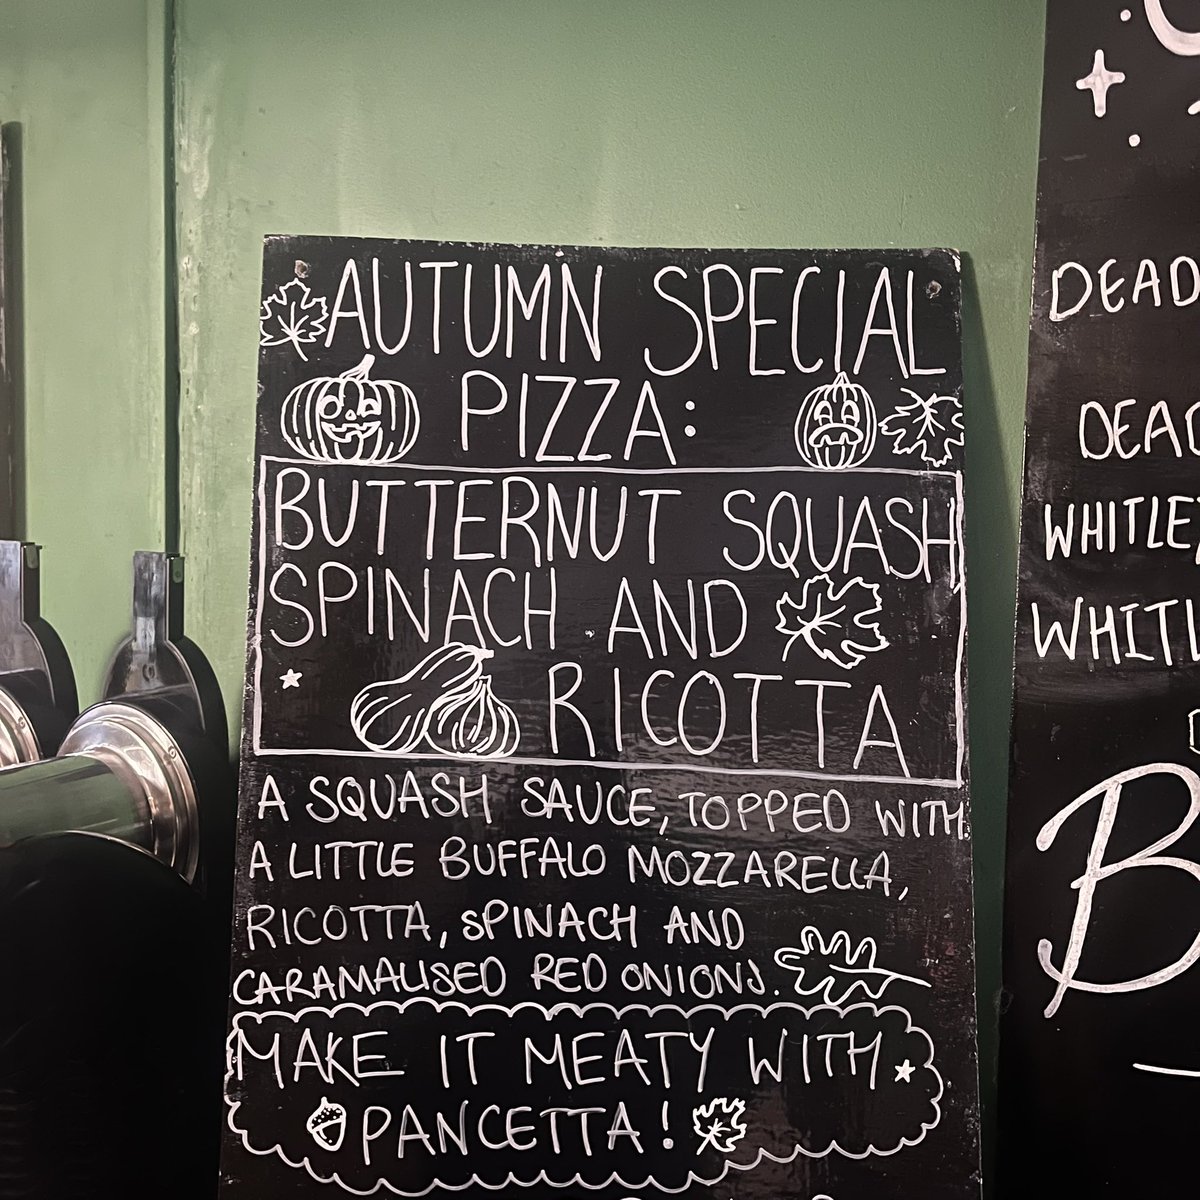 AUTUMN SPECIAL
PIZZA:
BUTTERNUT SQUASH
SPINACH AND
RICOTTA
A SQUASH SAUCE, TOPPED WITH
A LITTLE BUFFALO MOZZARELLA,
RICOTTA, SPINACH AND
CARAMALISED RED ONIONS.
MAKE IT MEATY WITH
PANCETTA!
DEAD
WHITLE